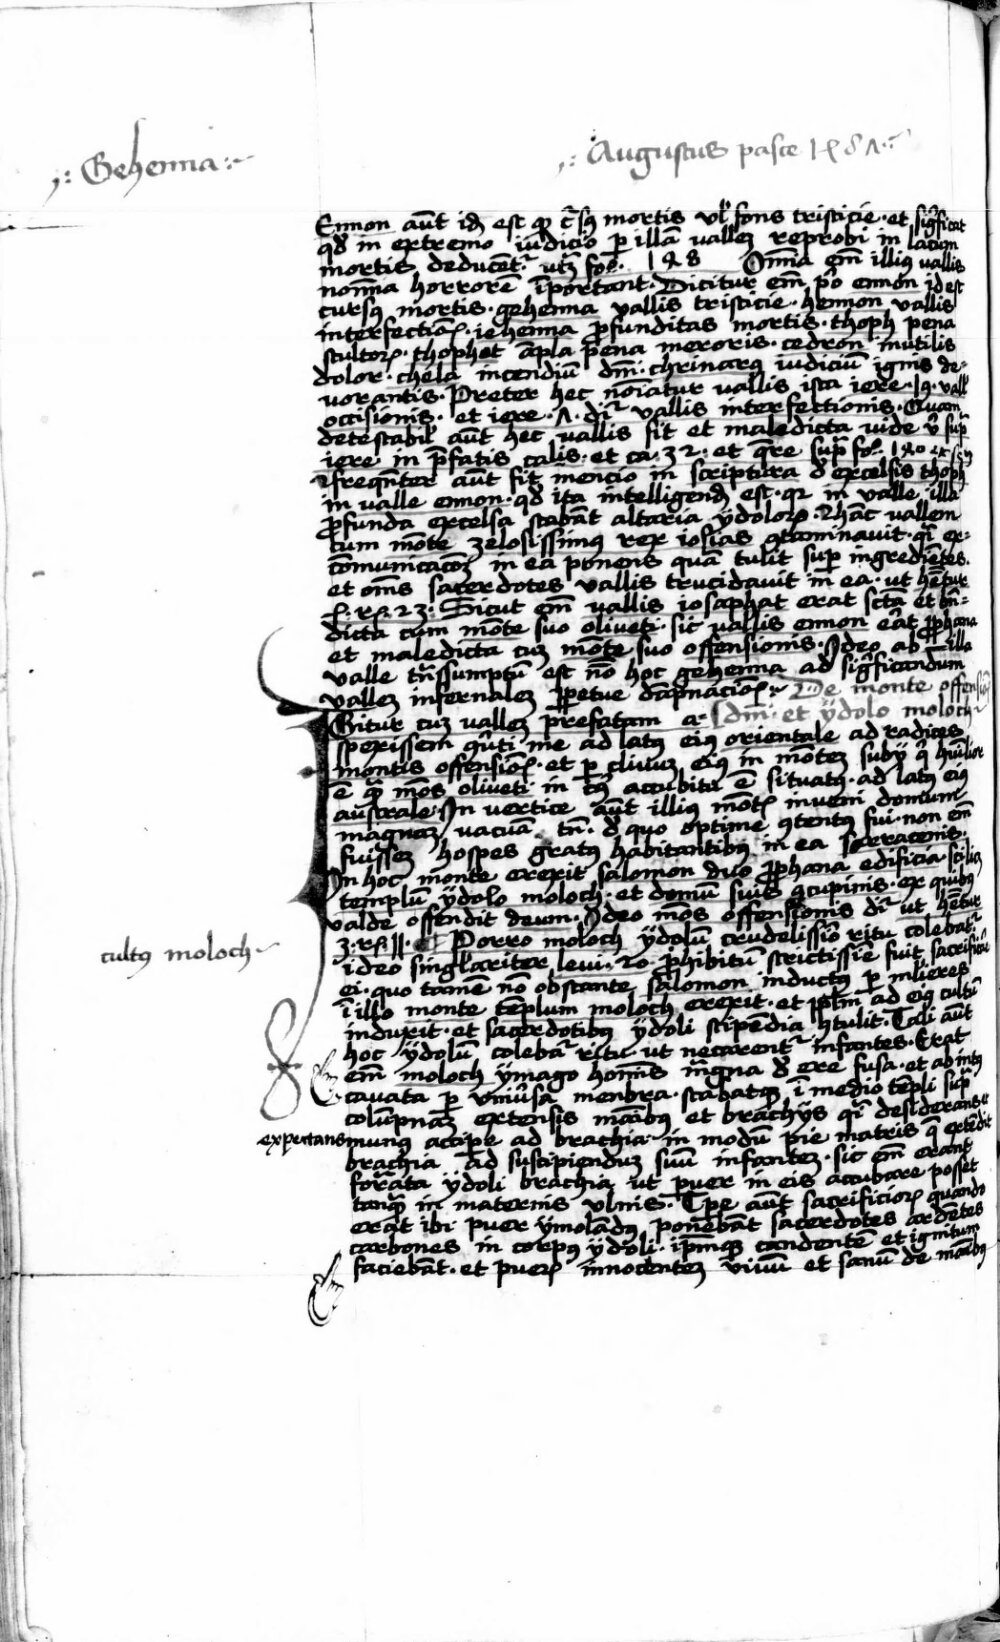 Gehenna
Augustus pasce 1481
Ennon aūt id est q c̄sꝯ mortis vl' fons tristicie · et sig̅ficat
qđ in extremo iudicio ꝑ illā vallem reprobi in lacum
mortis deducent᷑ vt s̅ fo · 148 Om̅ia em̅ illiꝯ vallis
nom̅ia horrore īportant · Dicitur em̅ p̊o ennon id est
cursꝯ mortis · gehenna vallis tristicie · hennon vallis
interfectiōꝫ · iehenna ꝓfunditas mortis · thoph pena
stultoꝝ · thophet āpla pena meroris · cedron inutilis
dolor · chela incendiū dn̄i · chrinarꝯ iudiciū ignis de-
vorantis · Preter hec noīatur vallis ista iere · 19 · vall'
occisionis · et iere · 7 · dr̄ vallis interfectionis · Quam
detestabil' aūt hec vallis sit et maledicta vide
iere · in p̄fatis calis · et ca · 32 · et q̄re sup̄ fo · 180
freqūter aūt fit mencio in scriptura đ excelsis thoph
in valle ennon · qđ ita intelligend̄ est · qꝛ in valle illa
ꝓfunda excelsa stabāt altaria ÿdoloꝝ · Hāc vallem
cum mōte zelosissimꝯ rex iosias ꝯtaminavit · qͥ ex-
com̅unicacōꝫ in ea ponens quā tulit sup̄ ingredie̅tes ·
et om̅s sacerdotes vallis trucidavit in ea · ut he̅tur
4 · rꝫ · 23 · Sicut em̅ vallis iosaphat erat sctā et bn̄-
dicta cum mōte suo oliveti · sic vallis ennon eāt ꝓphana
et maledicta cuꝫ mōte suo offensionis · Ideo ab illa
valle trāssumptū est nō hoc gehenna ad sig̅ficandum
valleꝫ infernaleꝫ ꝑpetue dāpnaciōꝫ · De monte offensiōꝫ
Igitur cuꝫ valleꝫ prefatam a · dn̄i · et ÿdolo moloch
spexissem q̄uti me ad latꝯ eiꝯ orientale ad radices
montis offensiōꝫ · et ꝑ clivuꝫ eiꝯ in mōteꝫ subÿ q̄ huilior
ē qᷓ mōs oliveti in cꝯ accubitu ē situatꝯ · ad latꝯ eiꝯ
australe · In vertice aūt illiꝯ mōtꝫ inveni domum
magnaꝫ vacuā tn̄ · đ quo optime ꝯtentꝯ fui · non em̅
fuisseꝫ hospes gratꝯ habitantibꝯ in ea sarracenis ·
In hoc monte erexit salomon duo ꝓphana edificia · scilicꝫ
templū ÿdolo moloch · et domū suis ꝯcupinis · ex quibꝯ
valde offendit deum · Ideo mōs offensionis dr̄ ut he̅tur
3 · rꝫ 11 · ¶ Porro moloch ÿdolū crudelissīo ritu colebat᷑
ideo singl'ariter levi · 20 · ꝓhibitū strictissīe fuit sacrificiū
ei · quo tame nō obstante salomon inductꝯ ꝑ m̅lieres
ī illo monte te̅plum moloch erexit · et ipl̅m ad eiꝯ cultū
induxit · et sacerdotibꝯ ÿdoli stipe̅dia ꝯtulit · Tali aūt
cultꝯ moloch
hoc ÿdolū colebat᷑ ritu · ut necarent᷑ infantes · Erat
em̅ moloch ÿmago hom̅is mg̅na đ ere fusa · et ab intꝯ
cavata ꝑ vniūsa menbra · stabatqꝫ ī medio te̅pli sup̄
colūpnaꝫ extensis maībꝯ et brachÿs qͥ desiderans et
expectans
munꝯ accipe ad brachia · in modū pie matris q̄ exte̅dit
brachia ad suscipienduꝫ suū infanteꝫ · sic em̅ erant
formata ÿdoli brachia ut puer in eis accubare posset
tanqᷓ in maternis vlnis · Tp̅e aūt sacrificioꝝ quando
erat ibi puer ÿmolādꝯ ponebāt sacerdotes arde̅tes
carbones in corpꝯ ÿdoli · ip̅mqꝫ candente̅ et ignitum
faciebāt · et pueꝝ innocenteꝫ vivū et sanū de maībꝯ